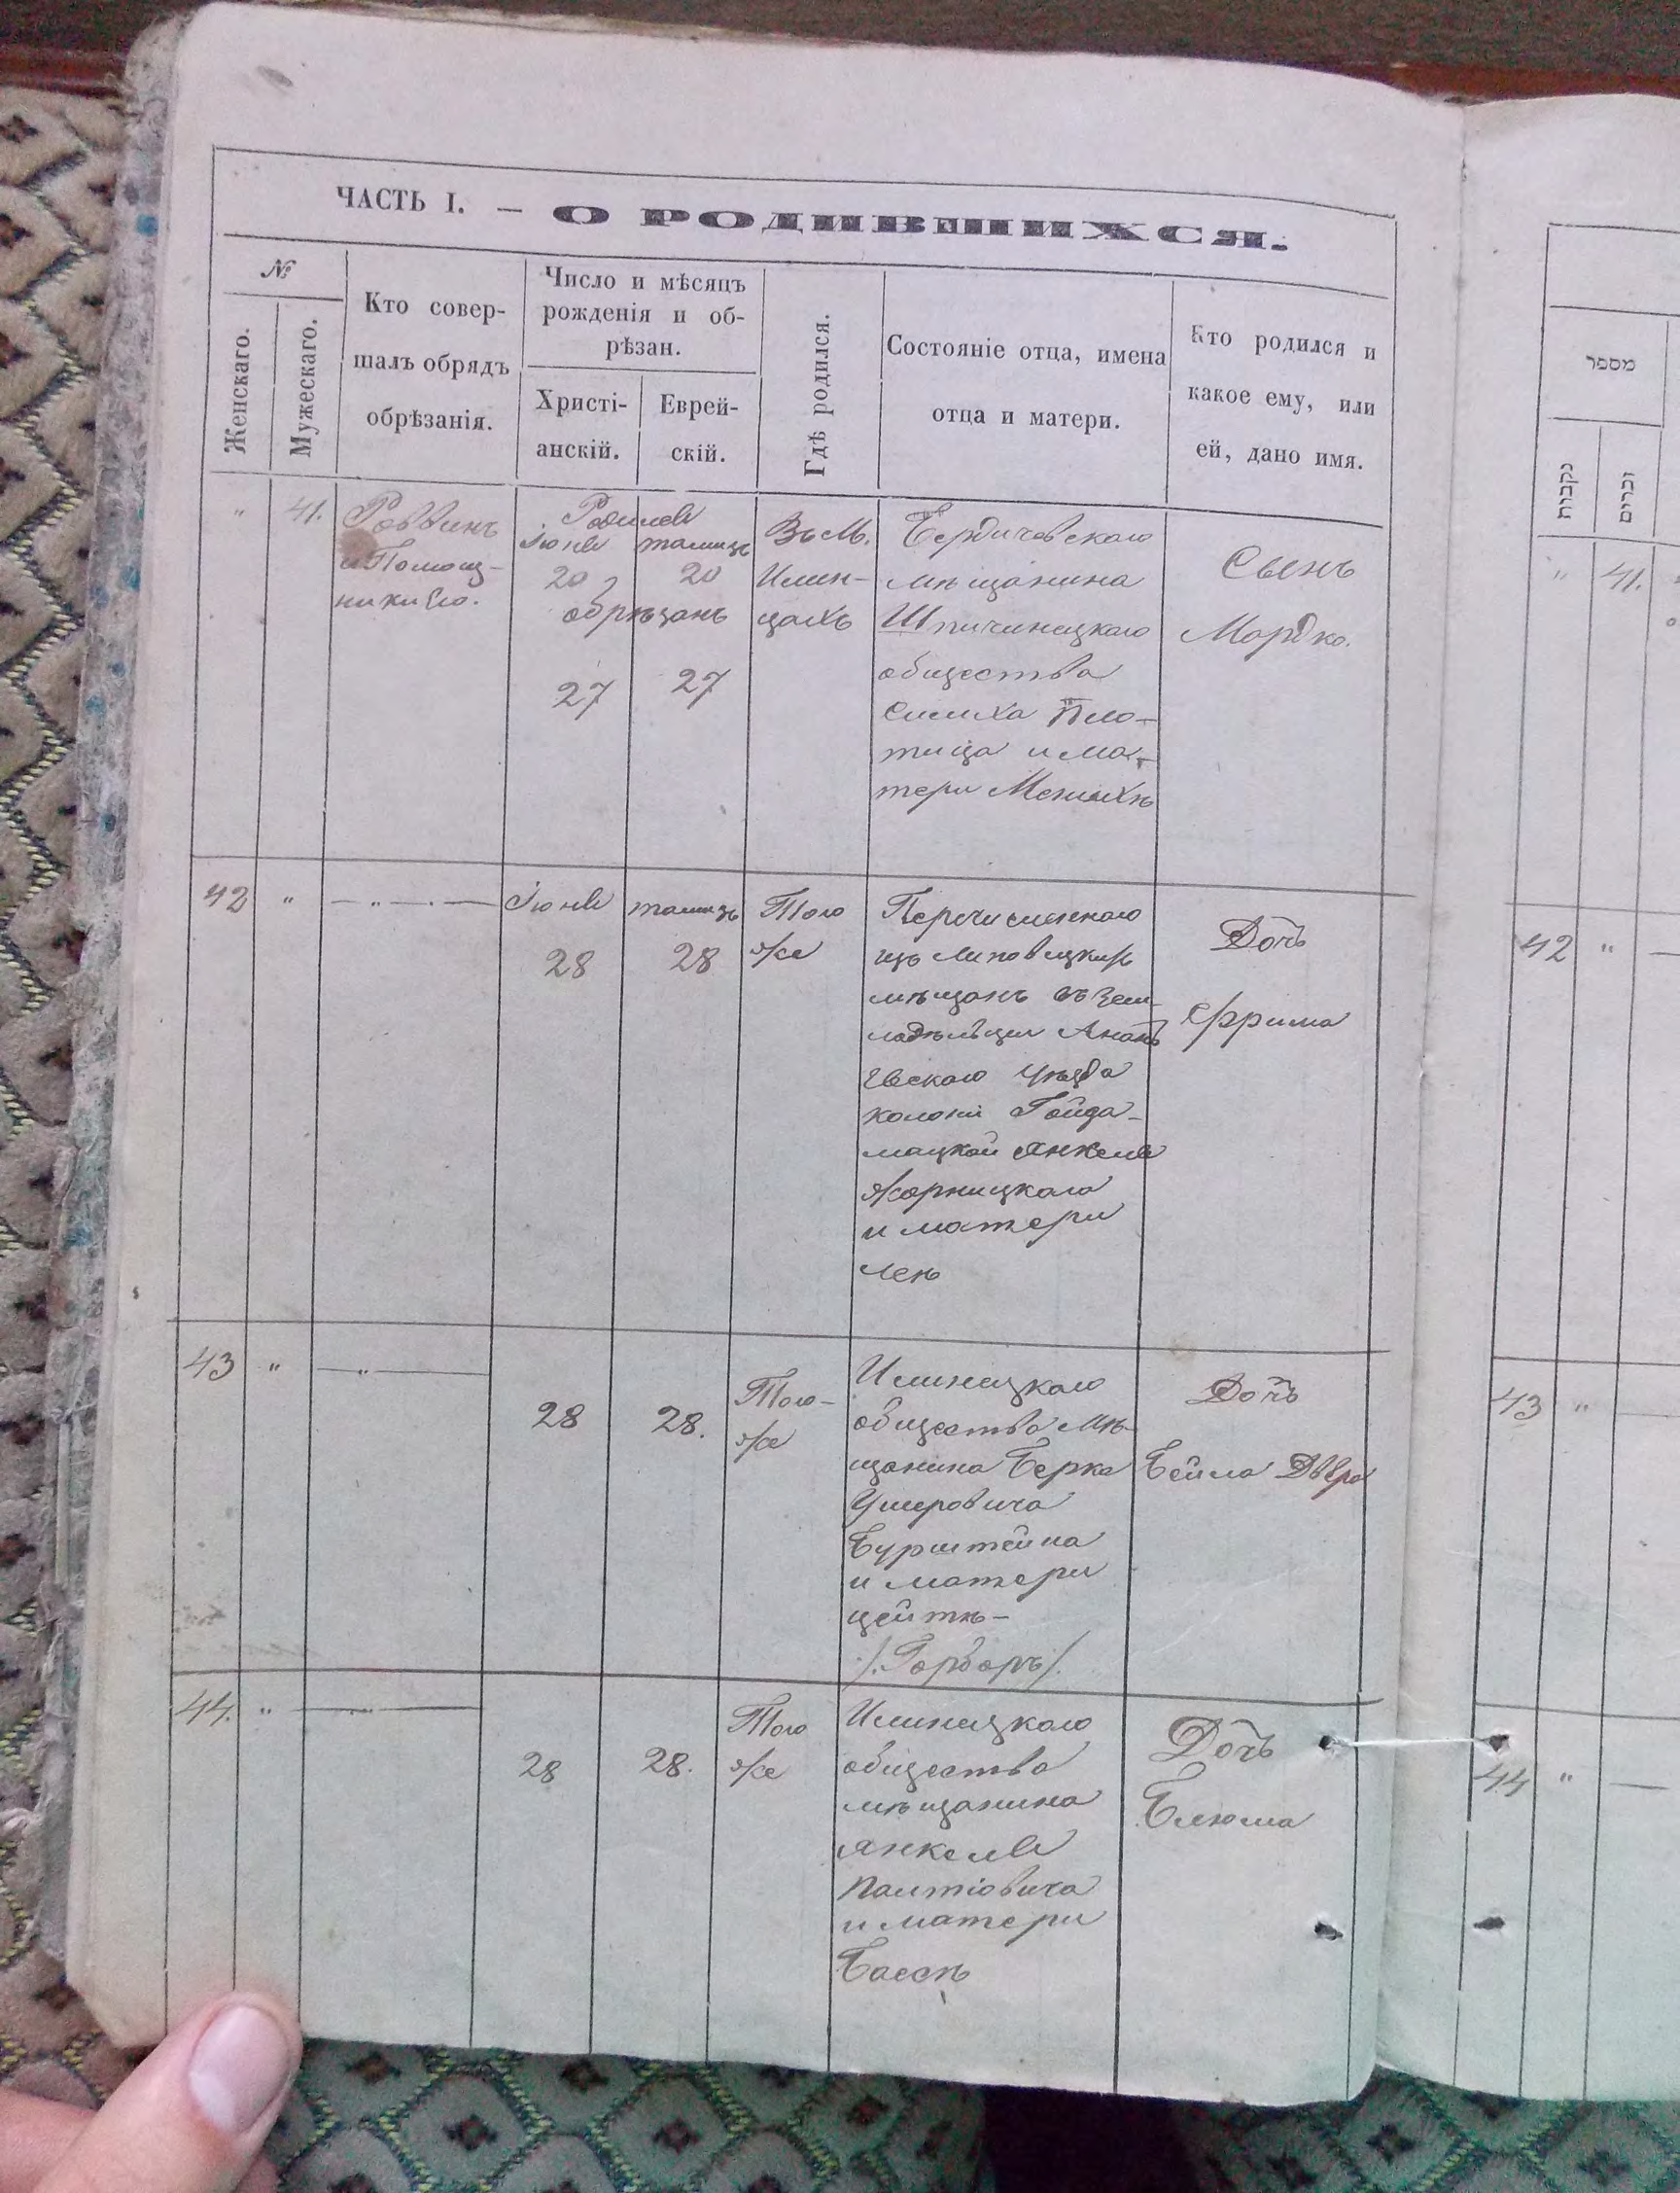 ЧАСТЬ I. — О РОДИВШИХСЯ.
№
Женскаго.
Мужескаго.
Кто совер-
шалъ обрядъ
обрѣзанія.
Число и мѣсяцъ
рожденія и об-
рѣзан.
Христі-
анскій.
Еврей-
скій.
Гдѣ родился.
Состояніе отца, имена
отца и матери.
Кто родился и
какое ему, или
ей, дано имя.
" 41.
Раввинъ
и Помощ-
никъ Его.
Родился
Іюня
20
тамизъ
20
обрѣзанъ
27 27
Въ М.
Илин-
цахъ
Бердичевскаго
мѣщанина
Шпичинецкаго
общества
Симха Пло-
тица и ма-
тери Менихѣ
Сынъ
Мордко.
42 " — " — . —
Іюня
28
тамизъ
28
Того
же
Перечисленаго
изъ Липовецкихъ
мѣщанъ въ зем-
ладѣльци Анань
евскаго уѣзда
колоніи Гайда-
мацкой Янкеля
Жорницкаго
и матери
Леѣ
Дочь
Фрима
43 " — " —
28 28.
Того-
же
Илинецкаго
общества мѣ-
щанина Берка
Умеровича
Бурштейна
и матери
Цейтѣ-
/. Гарбаръ /.
Дочь
Бейла Двера
44. "
28 28.
Того
же
Илинецкаго
общества
мѣщанина
Янкеля
Палтіовича
и матери
Басѣ
Дочь
Блюма
מספר
נקבות
זכרים
" 41.
42 " —
43 " —
44 " —